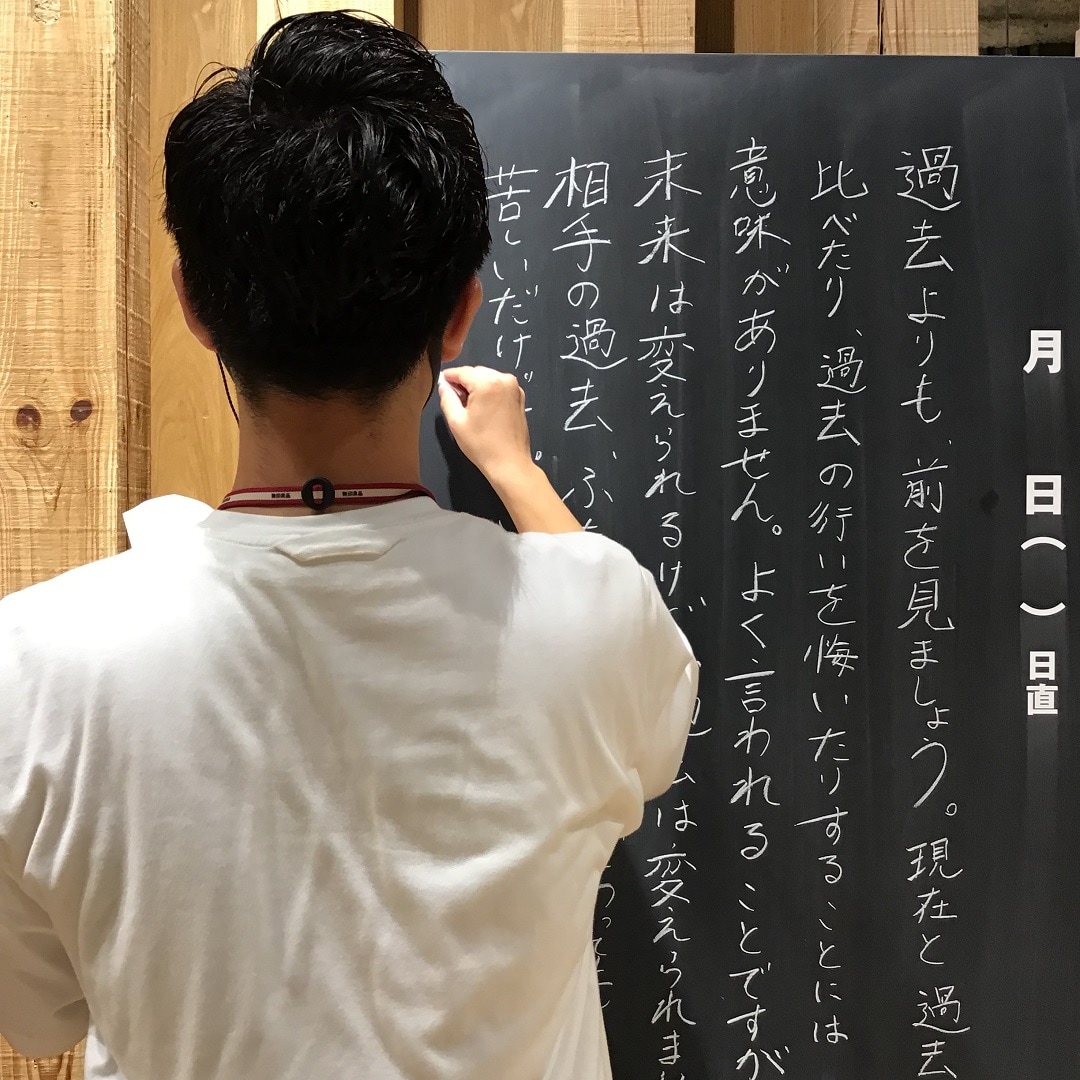 月 日( ) 日直
過去よりも、前を見ましょう。現在と過去
比べたり、過去の行いを悔いたりすることには
意味がありません。よく言われることですが
未来は変えられるけど 去は変えられま
相手の過去、ふ
苦しいだけ
無印良品 無印良品